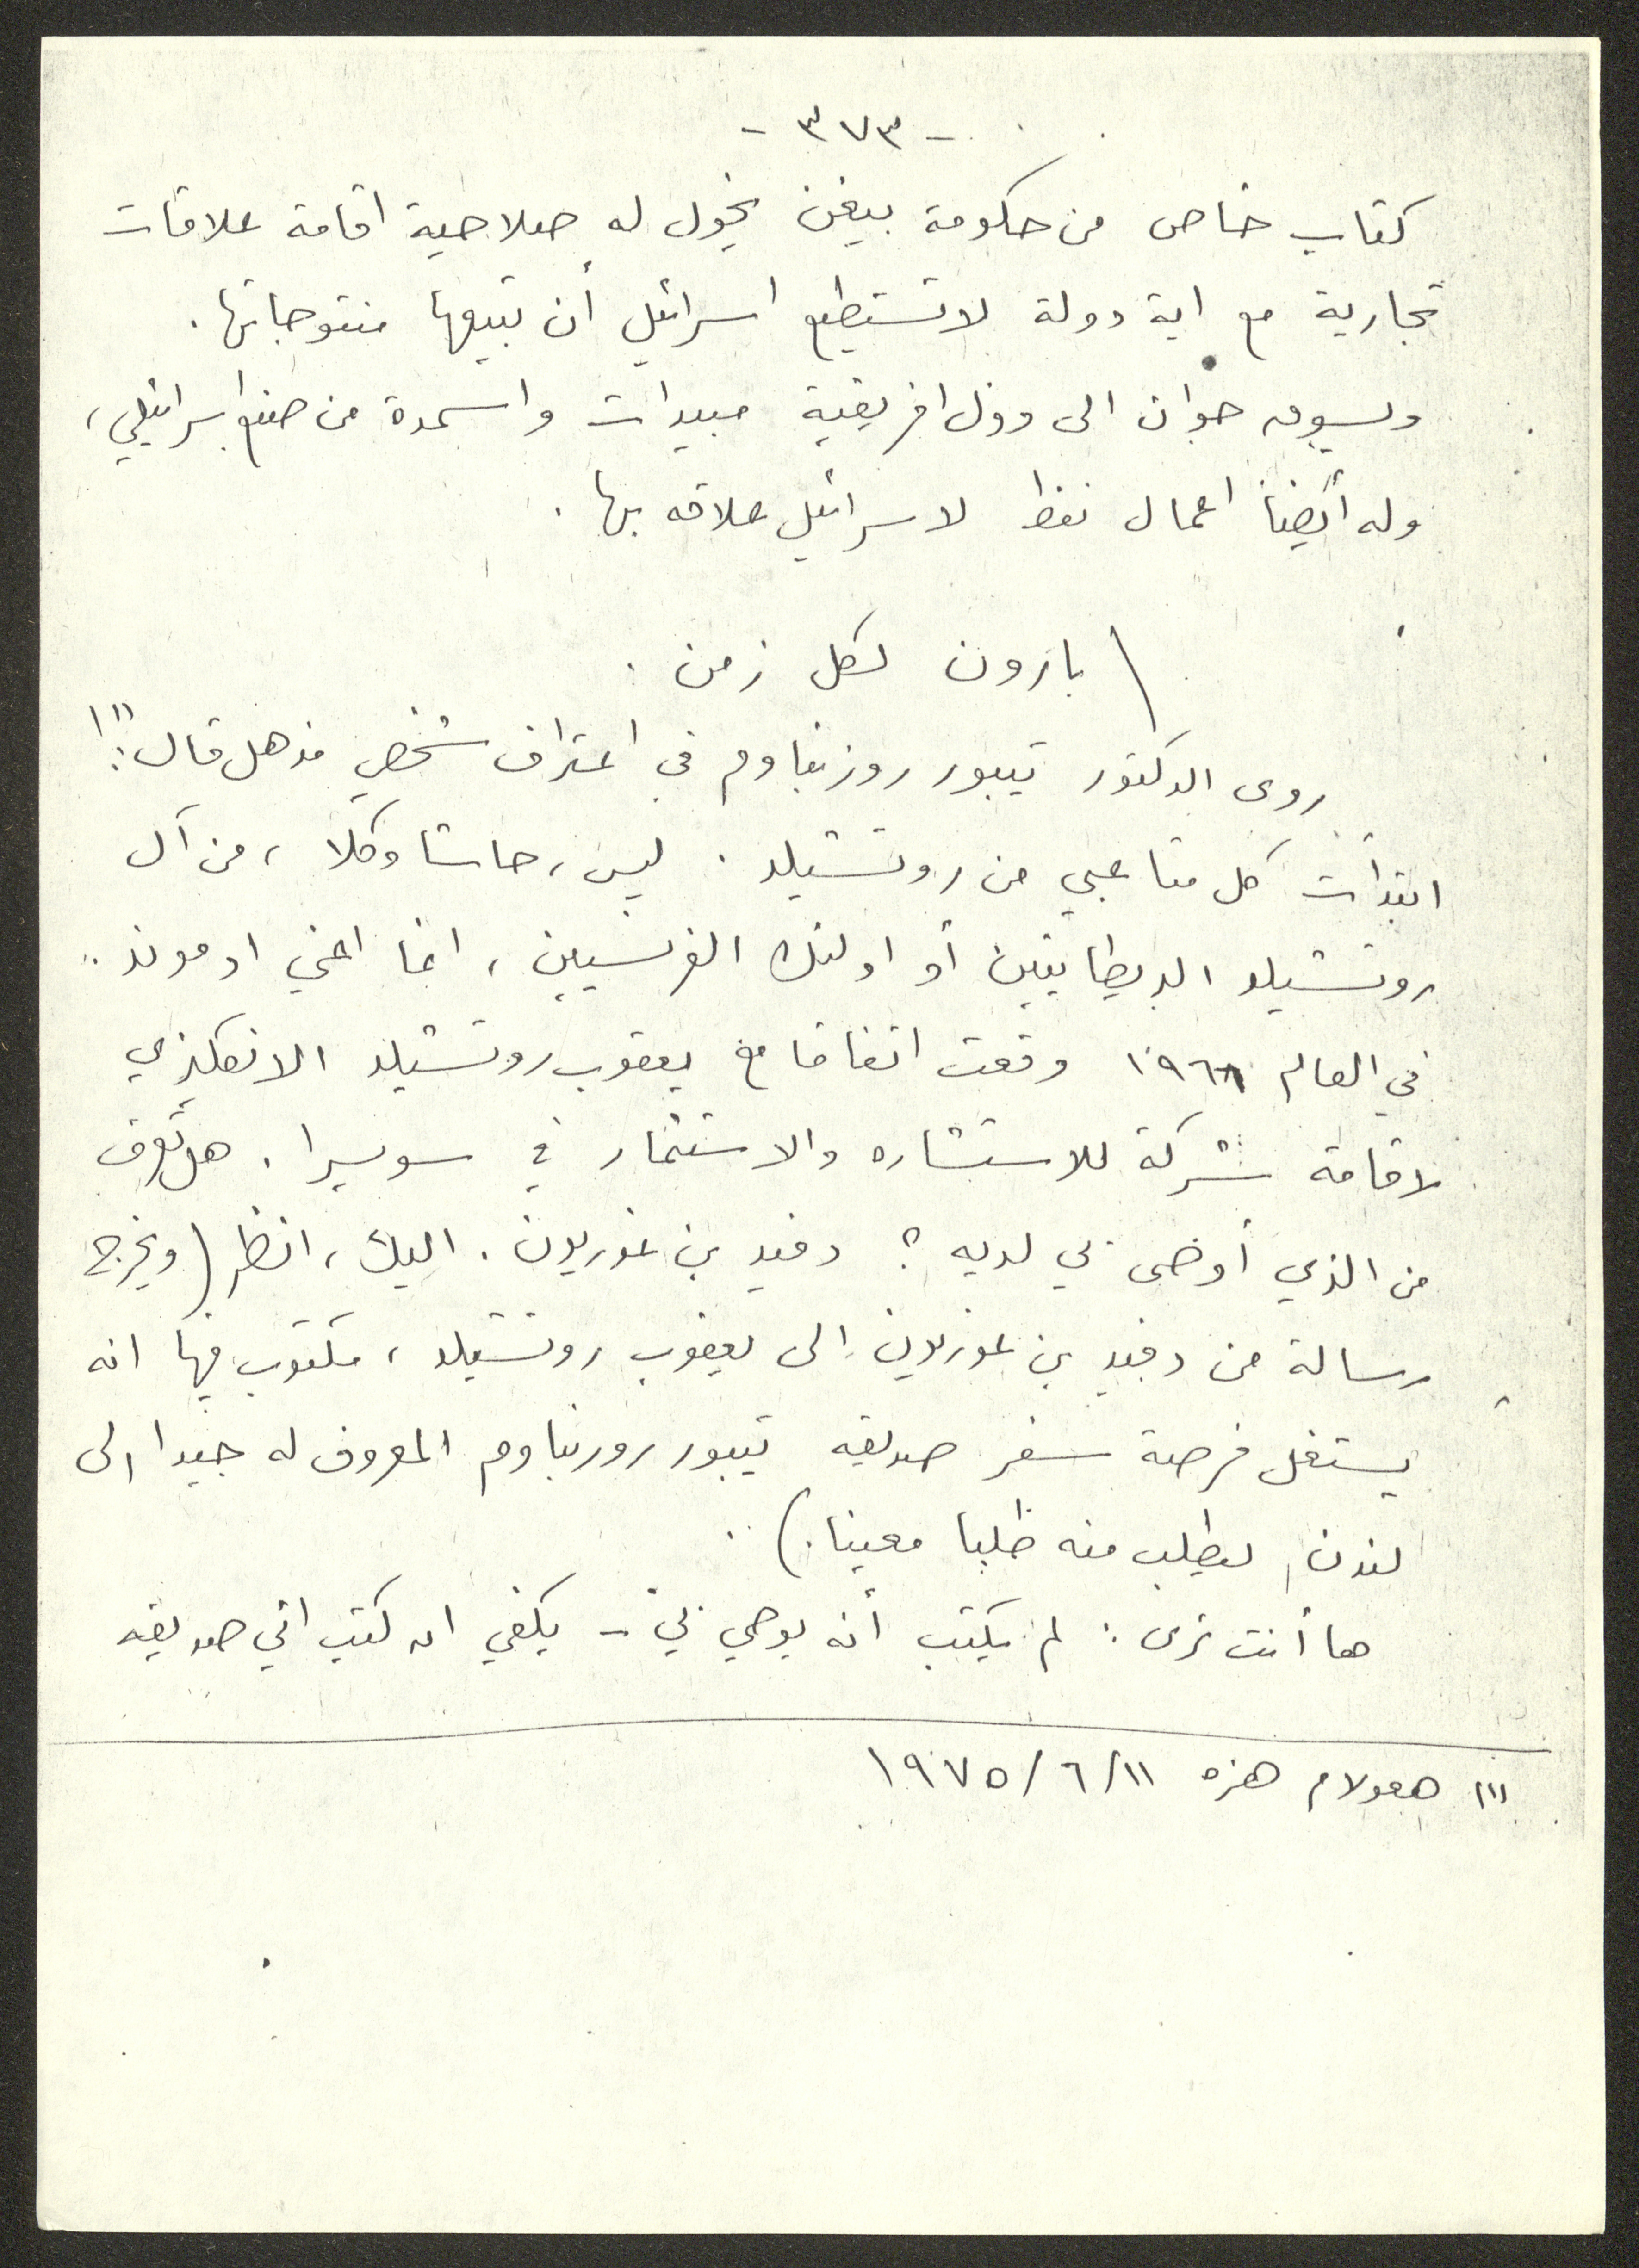 - ٣٧٣ -
كتاب خاص من حكومة بيغن يخول له صلاحية اقامة علاقات
تجارية مع اية دولة لا تستطيع اسرائيل أن تبيعها منتوجاتها.
ويسوق جوان الى دول افريقية مبيدات واسمدة من صنع اسرائيلي،
وله أيضاً اعمال نفط لاسرائيل علاقه بها.
بارون لكل زمن.
روى الدكتور تيبور روزنباوم في اعتراف شخصي مذهل قال:(١)
ابتدأت كل متاعبي من روتشيلد. ليس، حاشا وكلا، من آل
روتشيلد البريطانيين أو اولئك الفرنسيين، انما اعني ادموند..
في العام ١٩٦١ وقعت اتفاقا مع يعقوب روتشيلد الانكليزي
لاقامة شركة للاستشاره والاستثمار في سويسرا. هل تعرف
من الذي أوصى بي لديه؟ دفيد بن غوريون. اليك، انظر (ويخرج
رسالة من دفيد بن غوريون إلى يعقوب روتشيلد، مكتوب فيها انه
يستغل فرصة سفر صديقه تيبور روزنباوم المعروف له جيدا إلى
لندن ليطلب منه طلبا معينا.)..
ها أنت ترى: لم يكتب أنه يوصي بي - يكفي انه كتب اني صديقه
(١) هعولام هزه ١١/٦/١٩٧٥